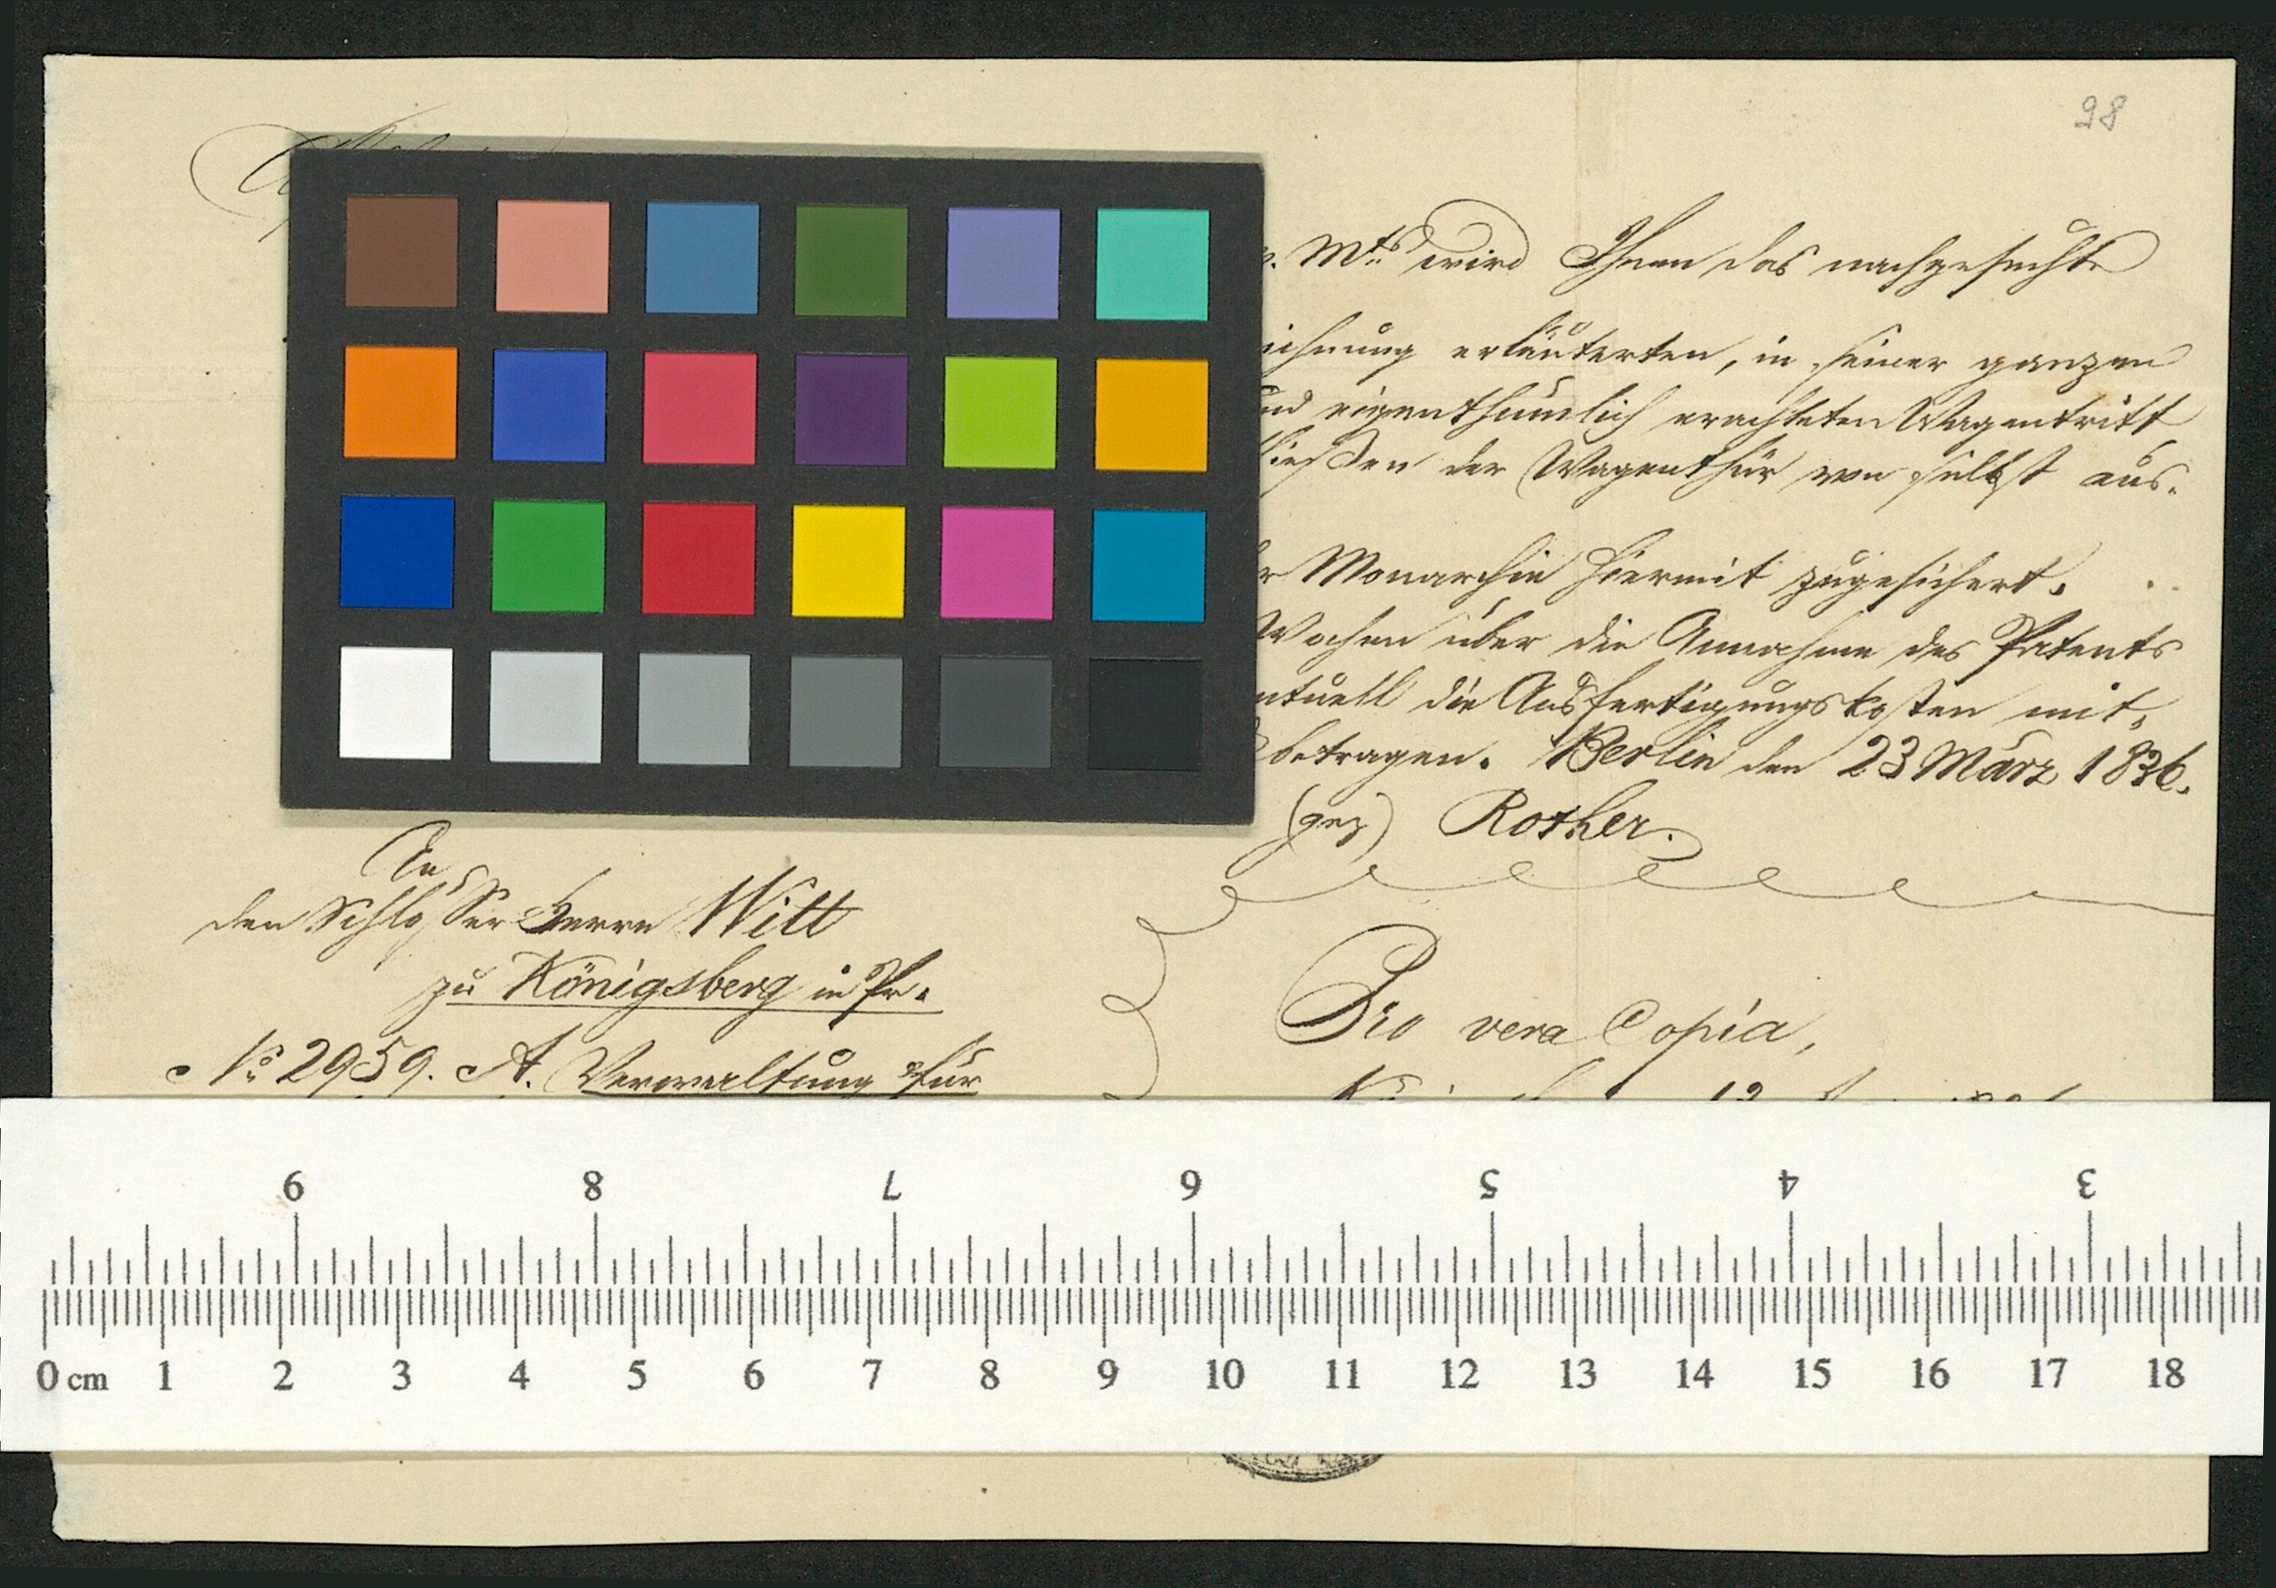 98
v. Mts wird Ihnen das nachgesuchte
ichnung erläuterten, in seiner ganzen
und eigenthümlich erachteten Wagentritt
ließen der Wagenthür von selbst aus-
r Monarchie hiermit zugesichert.
Wochen über die Annahme des Patents
ntuell die Ausfertigungskosten mit
betragen. Berlin den 23 März 1836.
(gez) Rother.
An
den Schlosser Herrn Witt
zu Königsberg in Pr.
No 2959. A. Verwaltung für
Pro vera Copia,
9 8 7 6 5 4 3
0 cm 1 2 3 4 5 6 7 8 9 10 11 12 13 14 15 16 17 18